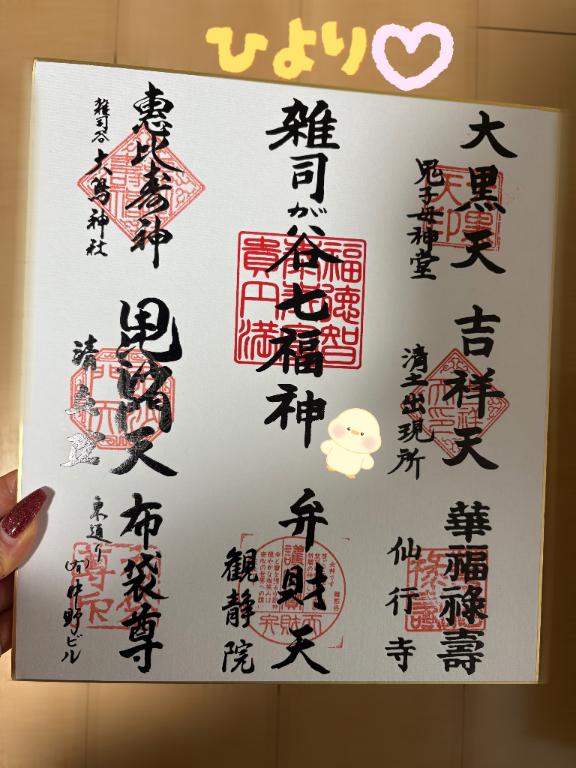 ひより
大黒天
鬼子母神堂
吉祥天
清土出現所
華福禄壽
仙行寺
雑司が谷七福神
福徳智
貴円満
弁財天
観静院
恵比寿神
雑司谷
大鳥神社
毘沙門天
清立院
布袋尊
東通り
(有)中野ビル